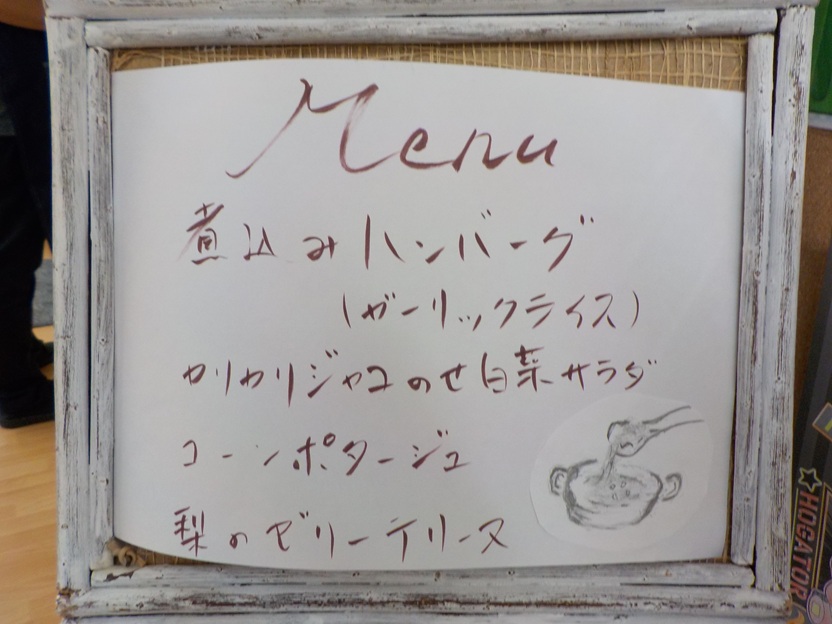 Menu
煮込みハンバーグ
(ガーリックライス)
カリカリジャコのせ白菜サラダ
コーンポタージュ
梨のゼリーテリーヌ
☆HOGATOR